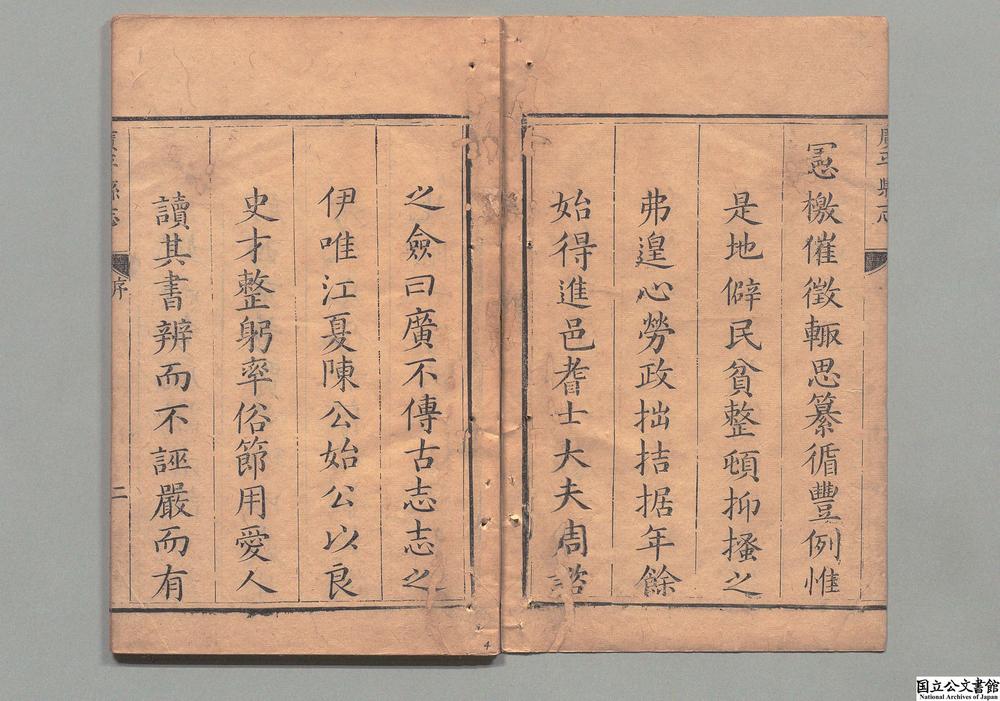 憲檄催徵輙思纂循豐例惟
是地僻民貧整頓抑搔之
弗遑心勞政拙拮据年餘
始得進邑耆士大夫周諮
之僉曰廣不傳古志志之
伊唯江夏陳公始公以良
史才整躬率俗節用愛人
讀其書辨而不誣嚴而有
廣平縣志
序
二
4
国立公文書館
National Archives of Japan